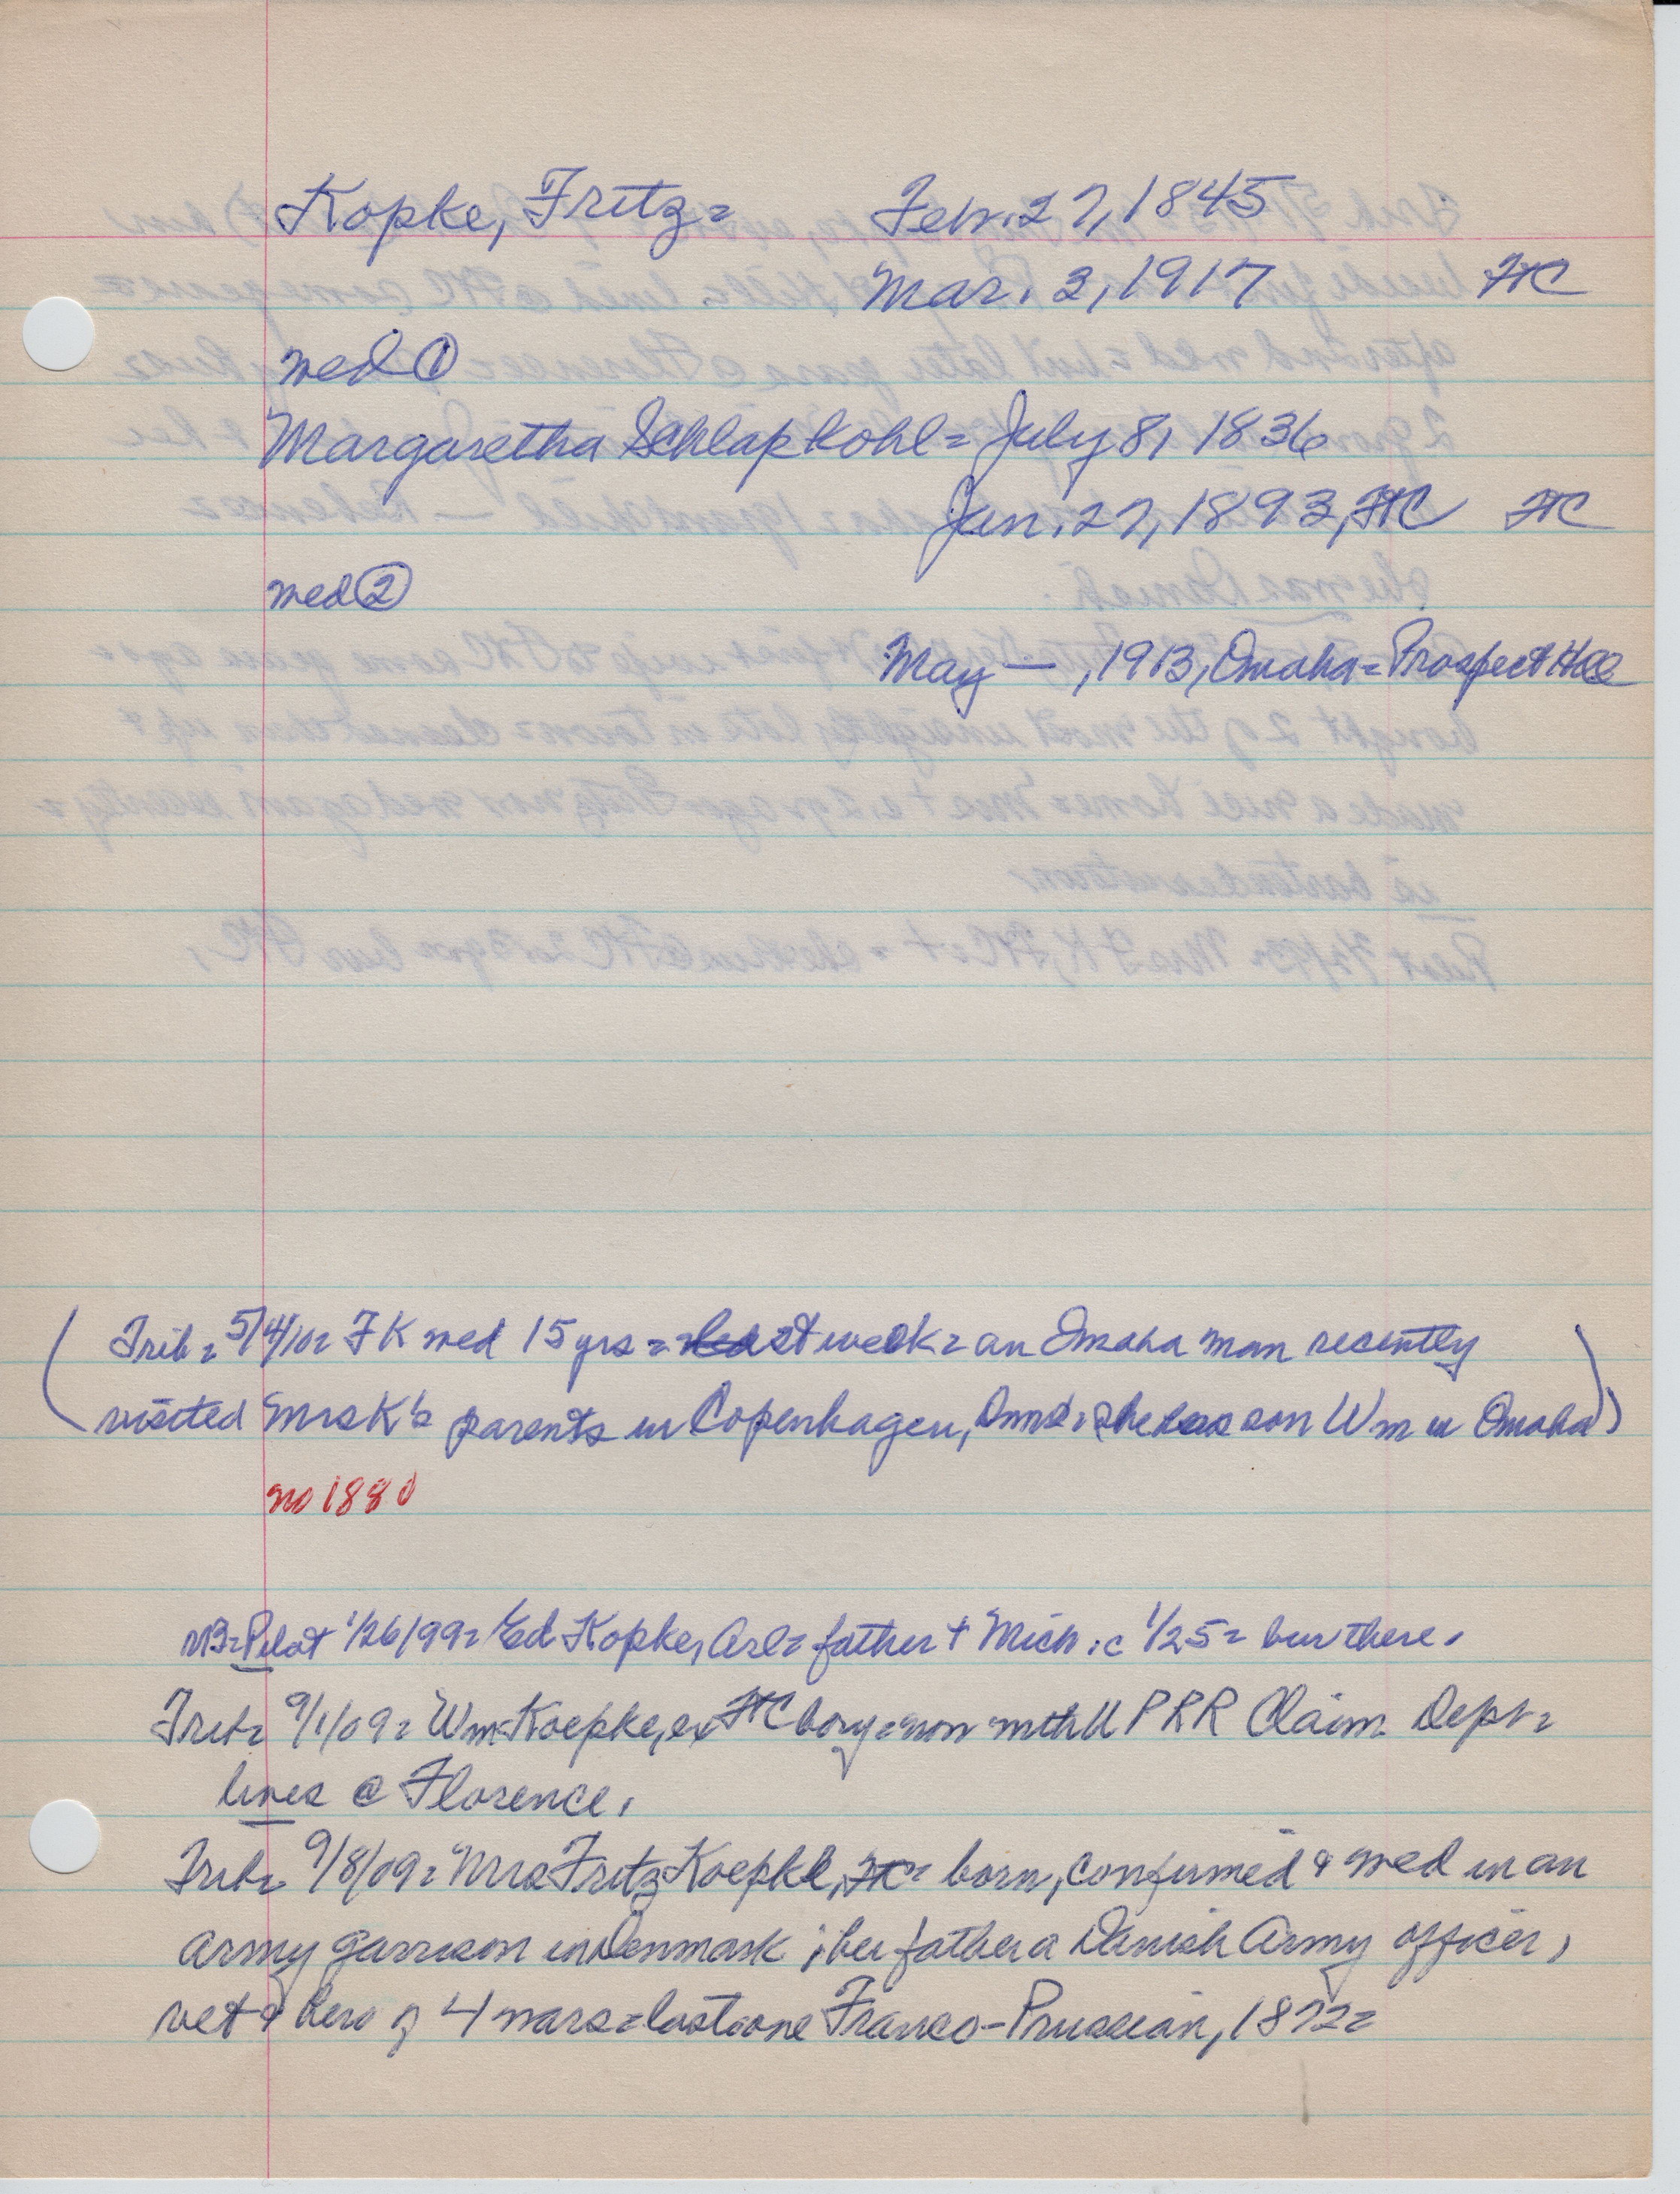 Kopke, Fritz = Feb. 27, 1845
Mar. 3, 1917 FtC
wed ①
Margaretha Schlapkohl = July 8, 1836
Jan. 27, 1893, FtC FtC
wed ②
May —, 1913, Omaha = Prospect Hill
(Trib = 5/4/10 = FK wed 15 yrs = last week = an Omaha man recently
visited Mrs K's parents in Copenhagen, Dnmk. she has son Wm in Omaha)
no 1880
NB = Pilot 1/26/99 = Ed Kopke, Arl = father + Mich. c 1/25 = bur there.
Trib = 9/1/09 = Wm Koepke, ex FtC boy = now with UPRR Claim Dept =
lives @ Florence.
Trib = 9/8/09 = Mrs Fritz Koepke, FtC = born, confirmed & wed in an
army garrison in Denmark ; her father a Danish Army officer,
vet & hero of 4 wars = last one Franco-Prussian, 1872 =